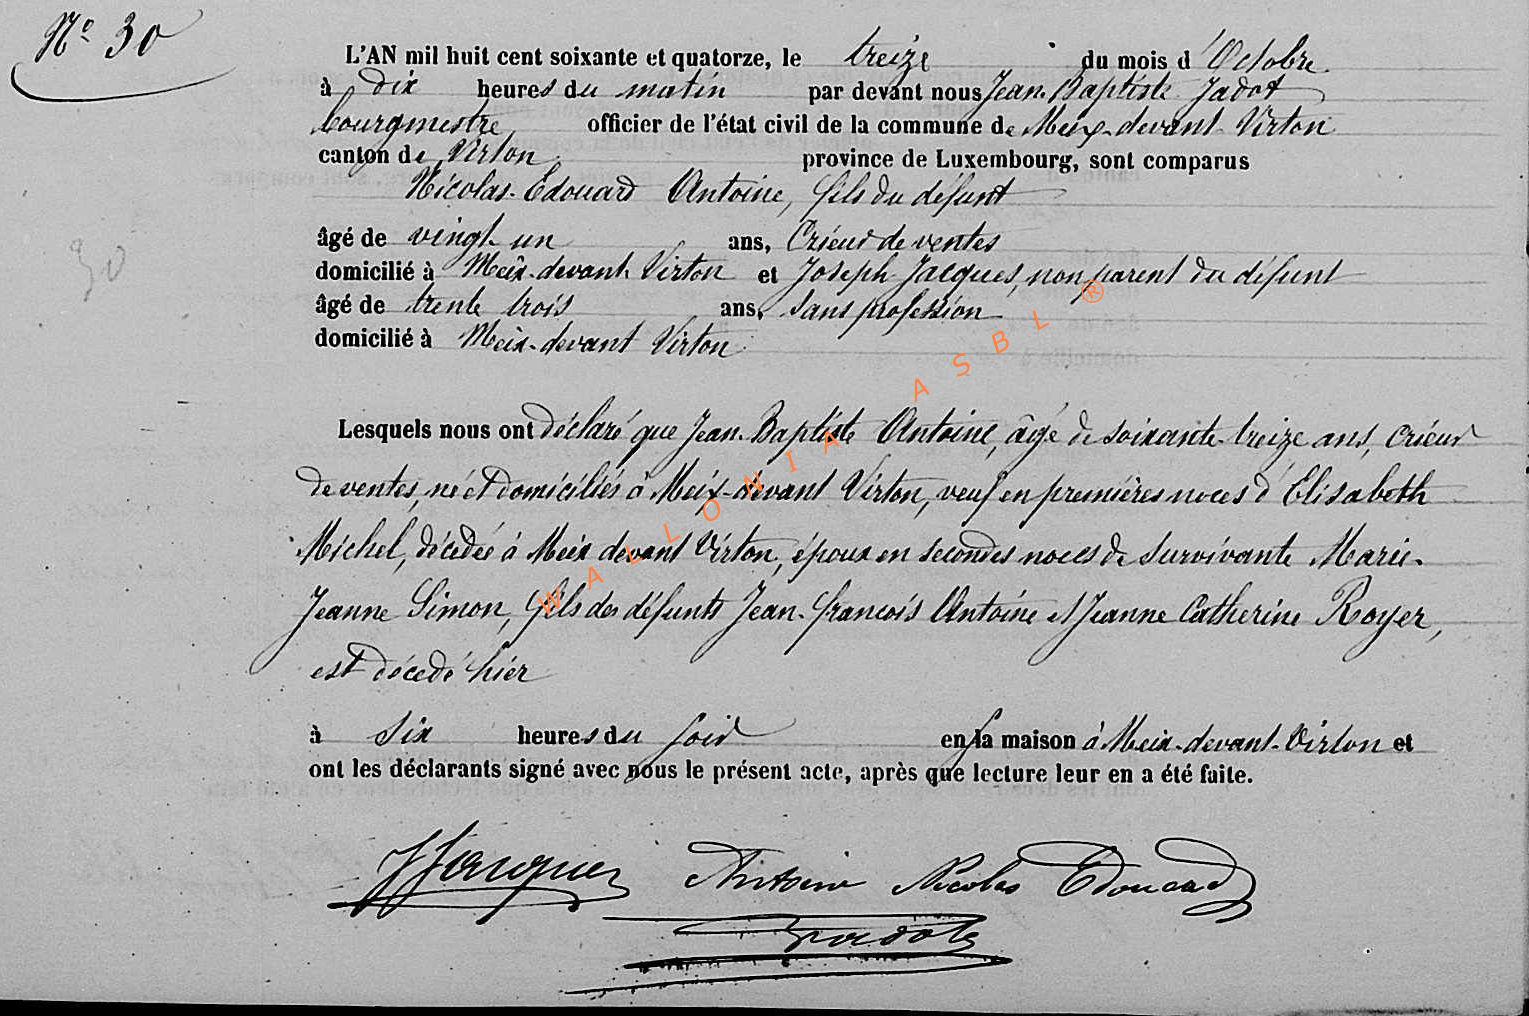 N° 30
L'AN mil huit cent soixante et quatorze, le treize du mois d'Octobre
à dix heures du matin par devant nous Jean-Baptiste Jadot
bourgmestre, officier de l'état civil de la commune de Meix-devant-Virton
canton de Virton province de Luxembourg, sont comparus
Nicolas-Edouard Antoine, fils du défunt
âgé de vingt-un ans, Crieur de ventes
domicilié à Meix-devant-Virton et Joseph Jacques, non parent du défunt
âgé de trente trois ans, sans profession
domicilié à Meix-devant Virton
30
Lesquels nous ont déclaré que Jean-Baptiste Antoine, âgé de soixante-treize ans, crieur
de ventes, né et domiciliés à Meix-devant Virton, veuf en premières noces d'Elisabeth
Michel, décédée à Meix devant Virton, époux en secondes noces de survivante Marie-
Jeanne Simon, fils des défunts Jean-françois Antoine et Jeanne Catherine Royer,
est décédé hier
à six heures du soir en sa maison à Meix-devant-Virton et
ont les déclarants signé avec nous le présent acte, après que lecture leur en a été faite.
JJacques Antoine Nicolas Edouard
Jadot
WALLONIA ASBL ®